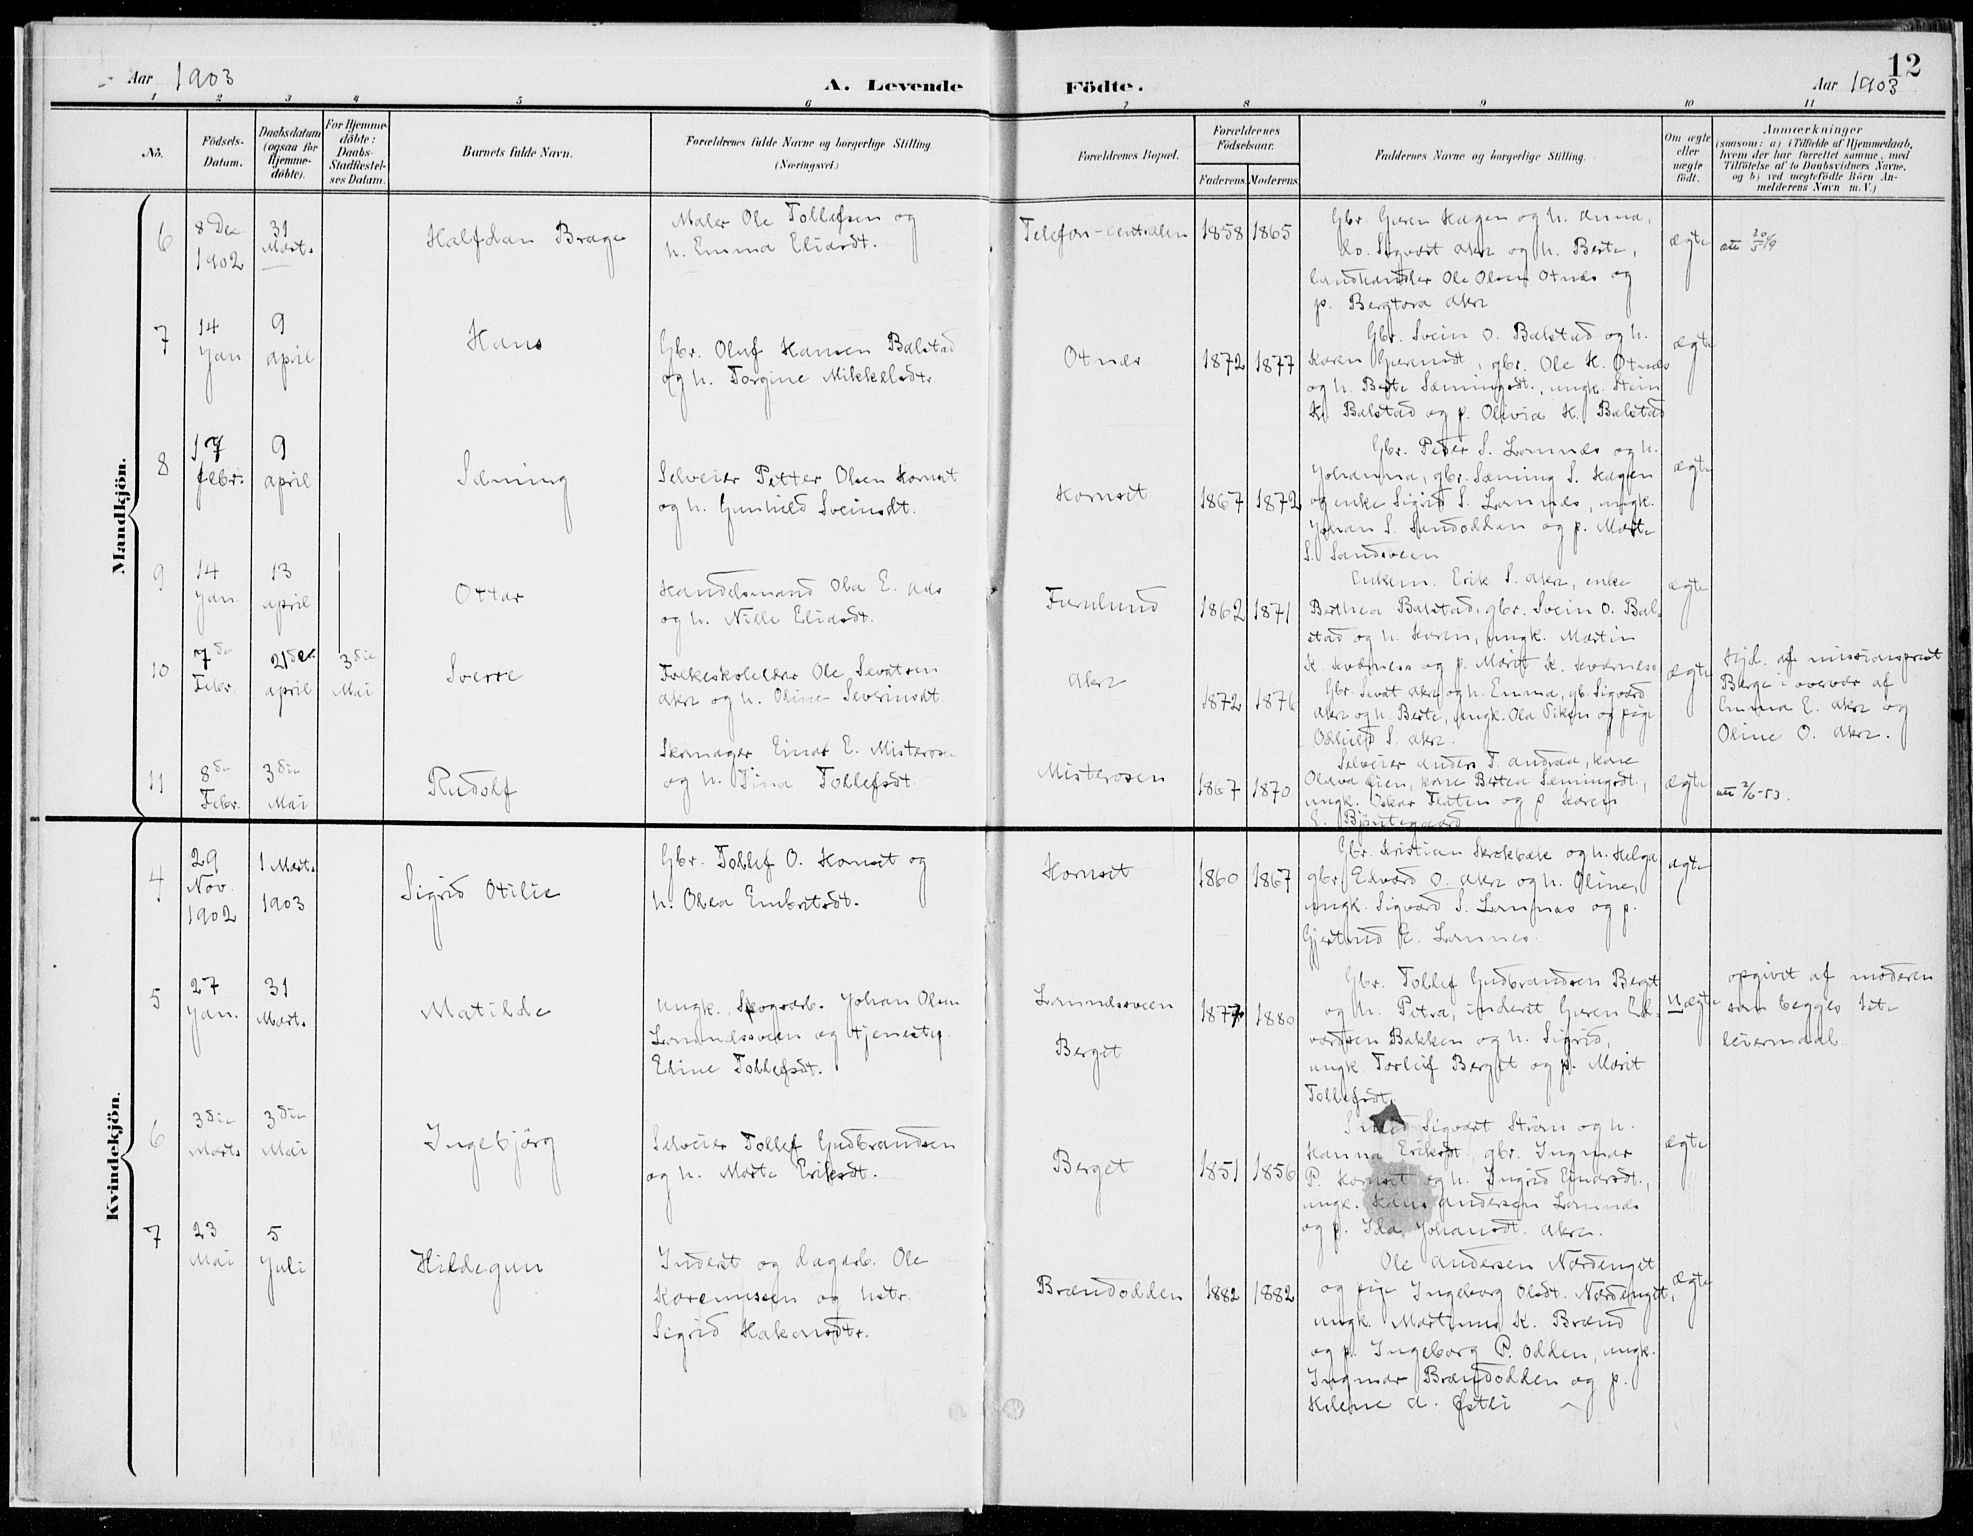 12
Aar 1903
A. Levende
Födte.
Aar 1903
1 2 3 4 5 6 7 8 9 10 11
No.
Födsels-
Datum.
Daabsdatum
(ogsaa for
Hjemme-
döbte).
For Hjemme-
döbte:
Daabs-
Stadfæstel-
ses Datum.
Barnets fulde Navn.
Forældrenes fulde Navne og borgerlige Stilling.
(Næringsvei.)
Forældrenes Bopæl.
Forældrenes
Födselsaar.
Faderens.
Moderens.
Faddernes Navne og borgerlige Stilling.
Om ægte
eller
uægte
födt.
Anmærkninger
(saasom: a) i Tilfælde af Hjemmedaab,
hvem der har forrettet samme, med
Tilföielse af to Daabsvidners Navne,
og b) ved uægtefödte Börn An-
melderens Navn m. V.)
Mandkjön.
6
8 Dec.
1902
31
Marts
Halfdan Brage
Maler Ole Tollefsen og
h. Emma Eliasdt.
Telefon-centralen
1858
1865
Gbr. Guren Hagen og h. Anna,
do. Sigvart Akre og h. Berte,
landhandler Ole Olsen Otnes og
p. Bergtora Akre
ægte
7
14
Jan
9
april
Hans
Gbr. Oluf Hansen Balstad
og h. Torgine Mikkelsdtr.
Otnes
1872
1877
Gbr. Svein O. Balstad og h.
Karen Gurensdt, gbr. Ole H. Otnes
og h. Berte Sæmingsdt., ungk. Stein
H. Balstad og p. Olivia H. Balstad
ægte
8
17
febr.
9
april
Sæming
Selveier Petter Olsen Hornset
og h. Gunhild Sveinsdt.
Hornset
1867
1872
Gbr. Peder S. Lomnes og h.
Johanna, gbr. Sæming S. Hagen
og enke Sigrid S. Lomnes, ungk.
Johan S. Sandodden og p. Marte
S. Sandsveen
ægte
9
14
Jan.
13
april
Ottar
Handelsmand Ola E. Aas
og h. Nille Eliasdt.
Furulund
1862
1871
Enkem. Erik S. Akre, enke
Berthea Balstad, gbr. Svein O. Bal-
stad og h. Karen, ungk. Martin
K. Kværness og p. Marit K. Kværness
ægte
10
7de
Febr.
21de
april
3die
Mai
Sverre
Folkeskolelærer Ole Sevatsen
Akre og h. Oline Severinsdt.
Akre
1872
1876
Gbr. Sevat Akre og h. Emma, gb. Sigvard
Akre og h. Berte, ungk. Ola Viken og pige
Oddlild S. Akre.
ægte
Hjd. af missionsprest
Berge i overvær af
Emma E. Akre og
Oline O. Akre.
11
8de
Febr.
3die
Mai
Rudolf
Skomager Einar E. Misterosen
og h. Tina Tollefsdt.
Misterosen
1867
1870
Selveier Anders T. Andraa, kone
Olava Lien, kone Bertea Sæmingsdt.,
ungk. Oskar Floten og p Karen
E. Bjöntegaard
ægte
att 2/6-53.
Kvindekjön.
4
29
Nov.
1902
1 Marts
1903
Sigrid Otilie
Gbr. Tollef O. Hornset og
h. Olea Embretsdt.
Hornset
1860
1867
Gbr. Kristian Skrekbæk og h. Helga
gbr. Edvard O. Akre og h. Oline,
ungk. Sigvard S. Lomnes og p.
Gjertrud E. Lomnes.
ægte
5
27
Jan.
31
Marts
Matilde
Ungk. Skogsarb. Johan Olsen
Lomnessveen og tjenestep.
Edine Tollefsdt.
Lomnessveen
Berget
1877
1880
Gbr. Tollef Gudbrandsen Berget
og h. Petra, inderst Guren Ed-
vardsen Bakken og h. Sigrid,
ungk. Torleif Berget og p. Marit
Tollefsdt.
uægte
opgivet af moderen
som begges 1ste
leiermaal.
6
3die
Marts
3die
Mai
Ingebjörg
Selveier Tollef Gudbrandsen
og h. Marte Eriksdt.
Berget
1851
1856
Smed Sigvart Ström og h.
Hanna Eriksdt, gbr. Ingmar
P. Hornset og h. Ingrid Einarsdt.,
ungk. Hans Andersen Lomnes
og p. Ida Johansdt. Akre.
ægte
7
23
Mai
5
Juli
Hildegun
Inderst og dagarb. Ole
Korenussen og hstr.
Sigrid Hakonsdtr.
Brændodden
1882
1882
Ole Andersen Nordenget
og pige Ingeborg Olsdt. Nordenget,
ungk. Martinus K. Brænd
og p. Ingeborg P. Odden, ungk.
Ingmar Brændodden og p.
Helene A. Østli
ægte